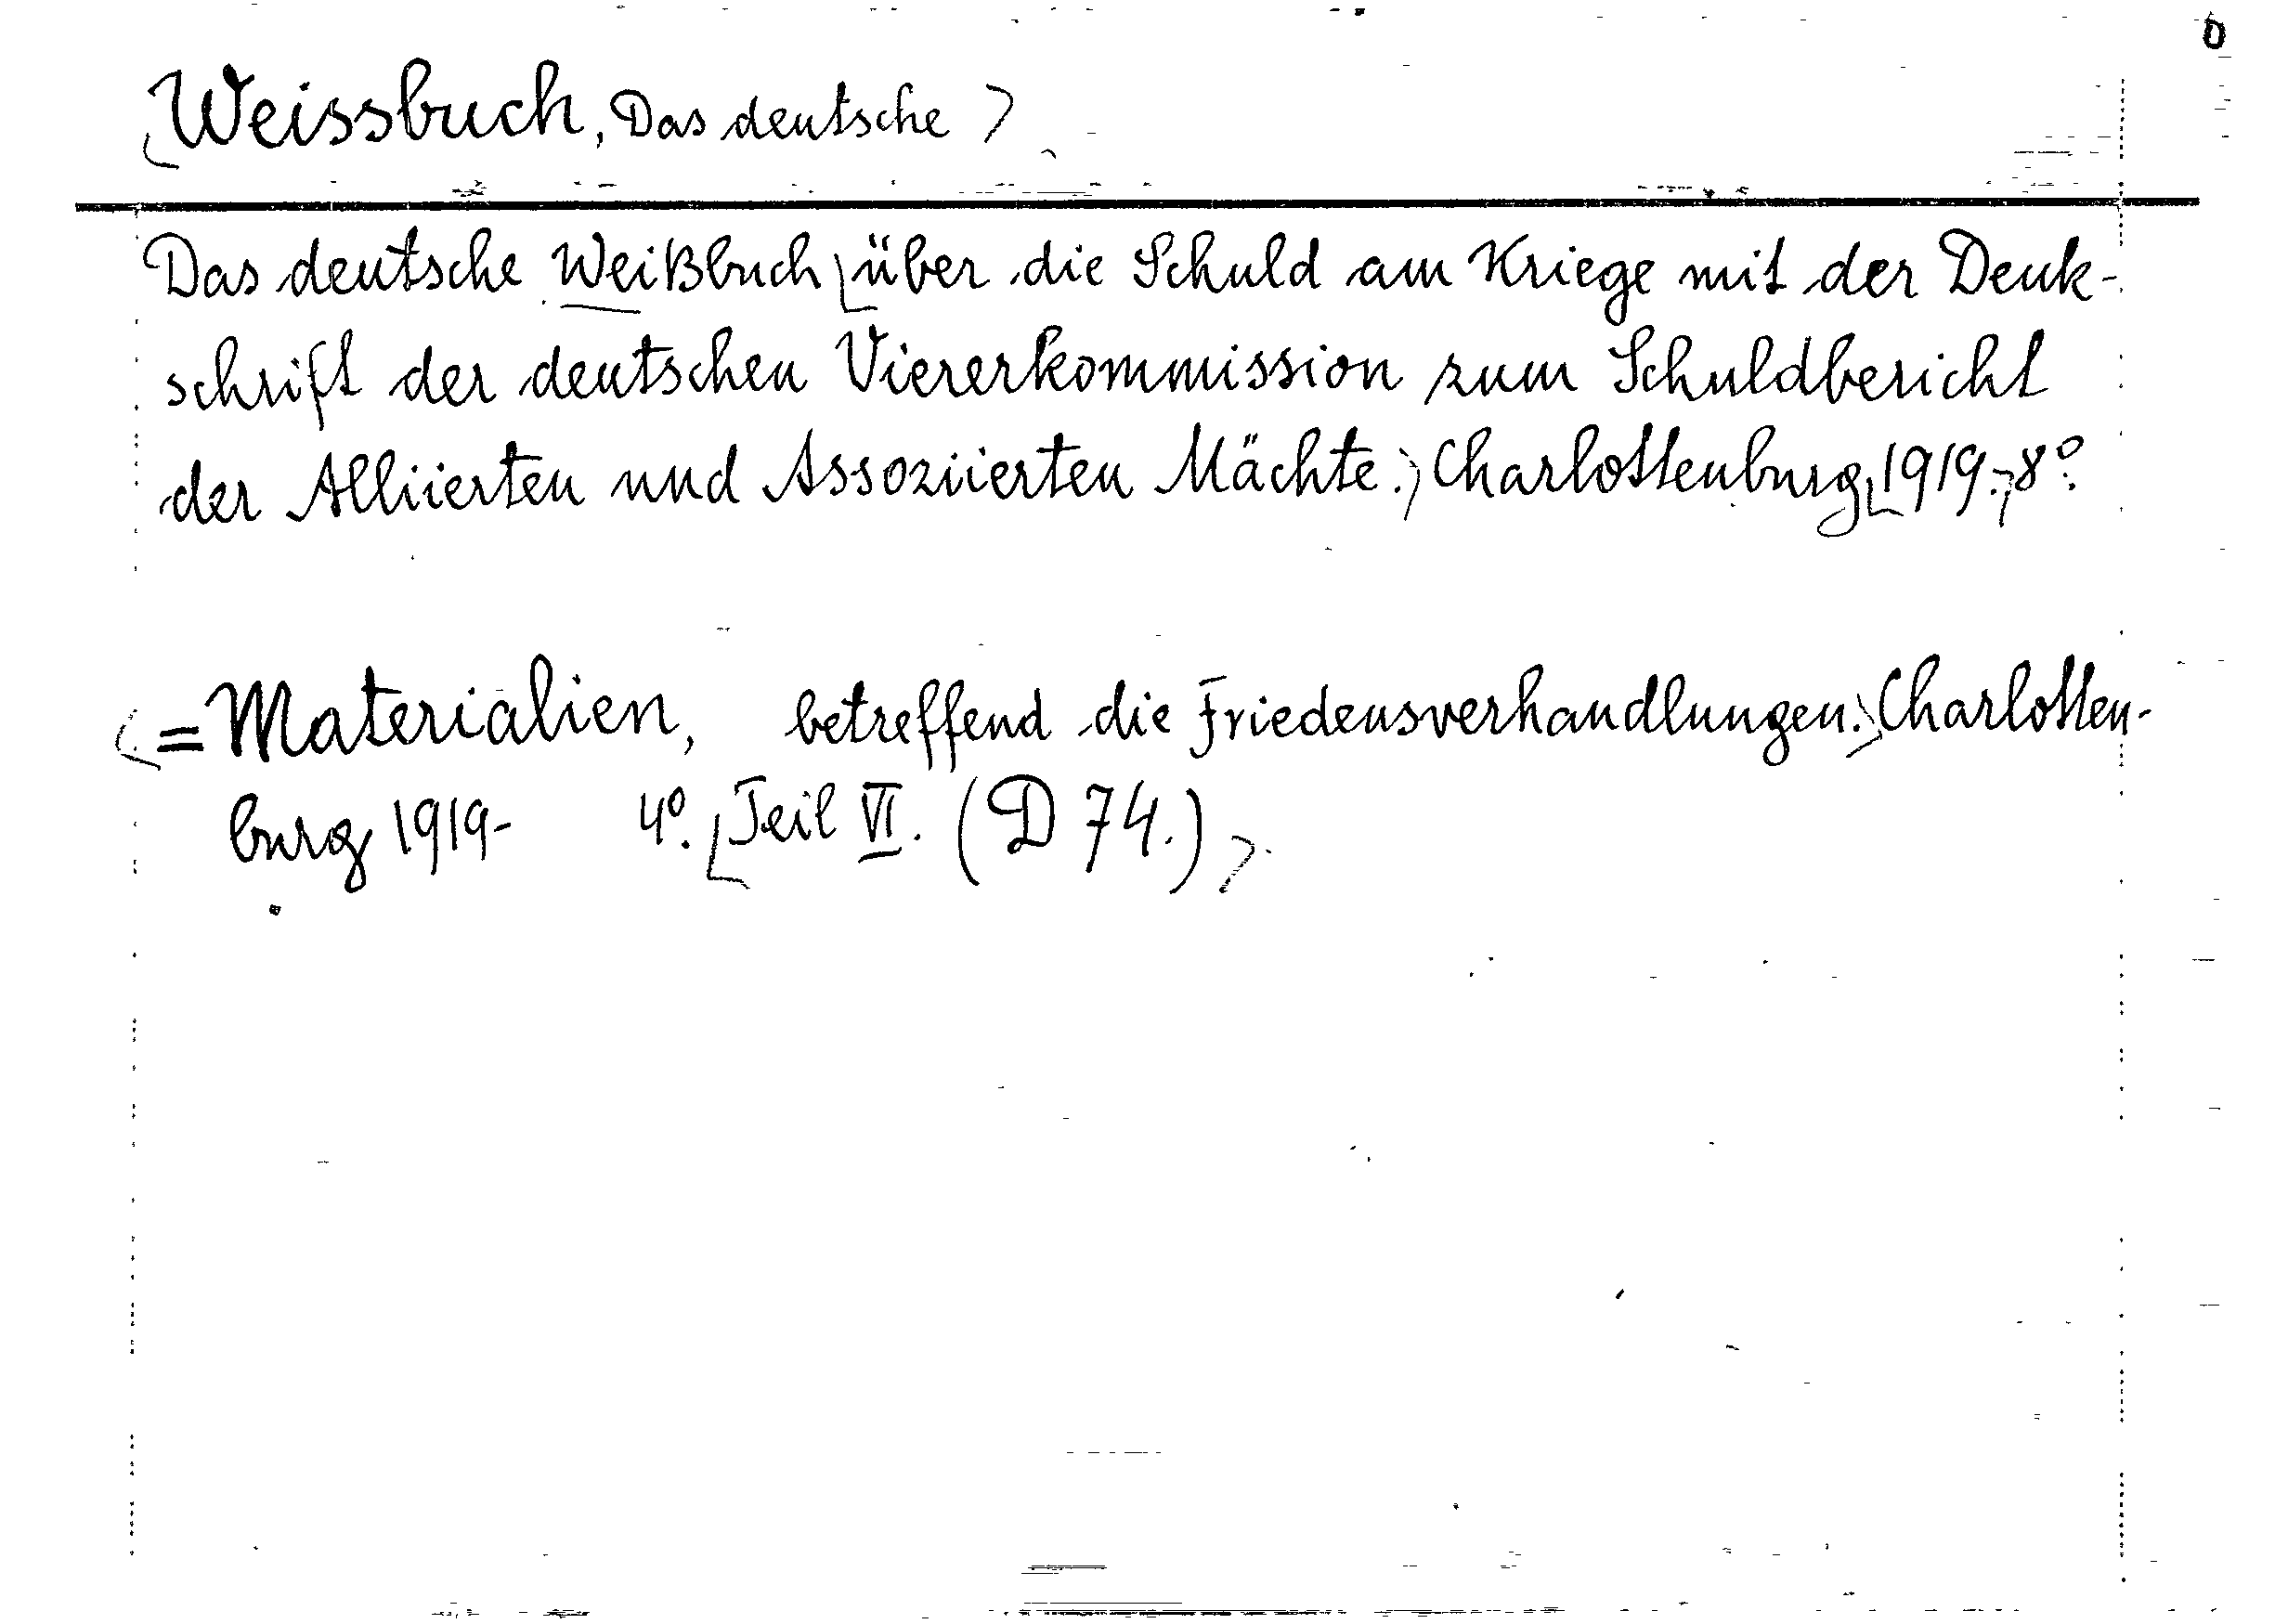 Weissbuch, Das deutsche
Das deutsche Weißbuch über die Schuld am Kriege mit der Denk-
schrift der deutschen Viererkommission zum Schuldbericht
der Alliierten und Assoziierten Mächte. Charlottenburg 1919. 8°.
= Materialien, betreffend die Friedensverhandlungen. Charlotten-
burg 1919- 4°. Teil VI. (D 74.)